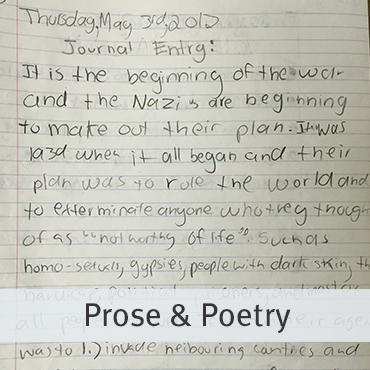 Thursday, May 3rd, 2012
Journal Entry:
It is the beginning of the war
and the Nazi's are beginning
to make out their plan. It was
1939 when it all began and their
plan was to rule the world and
to exterminate anyone who they though
of as "not worthy of life". Such as
homo-sexuals, gypsies, people with dark skin, th
Prose & Poetry
was to 1.) invade neibouring contries and